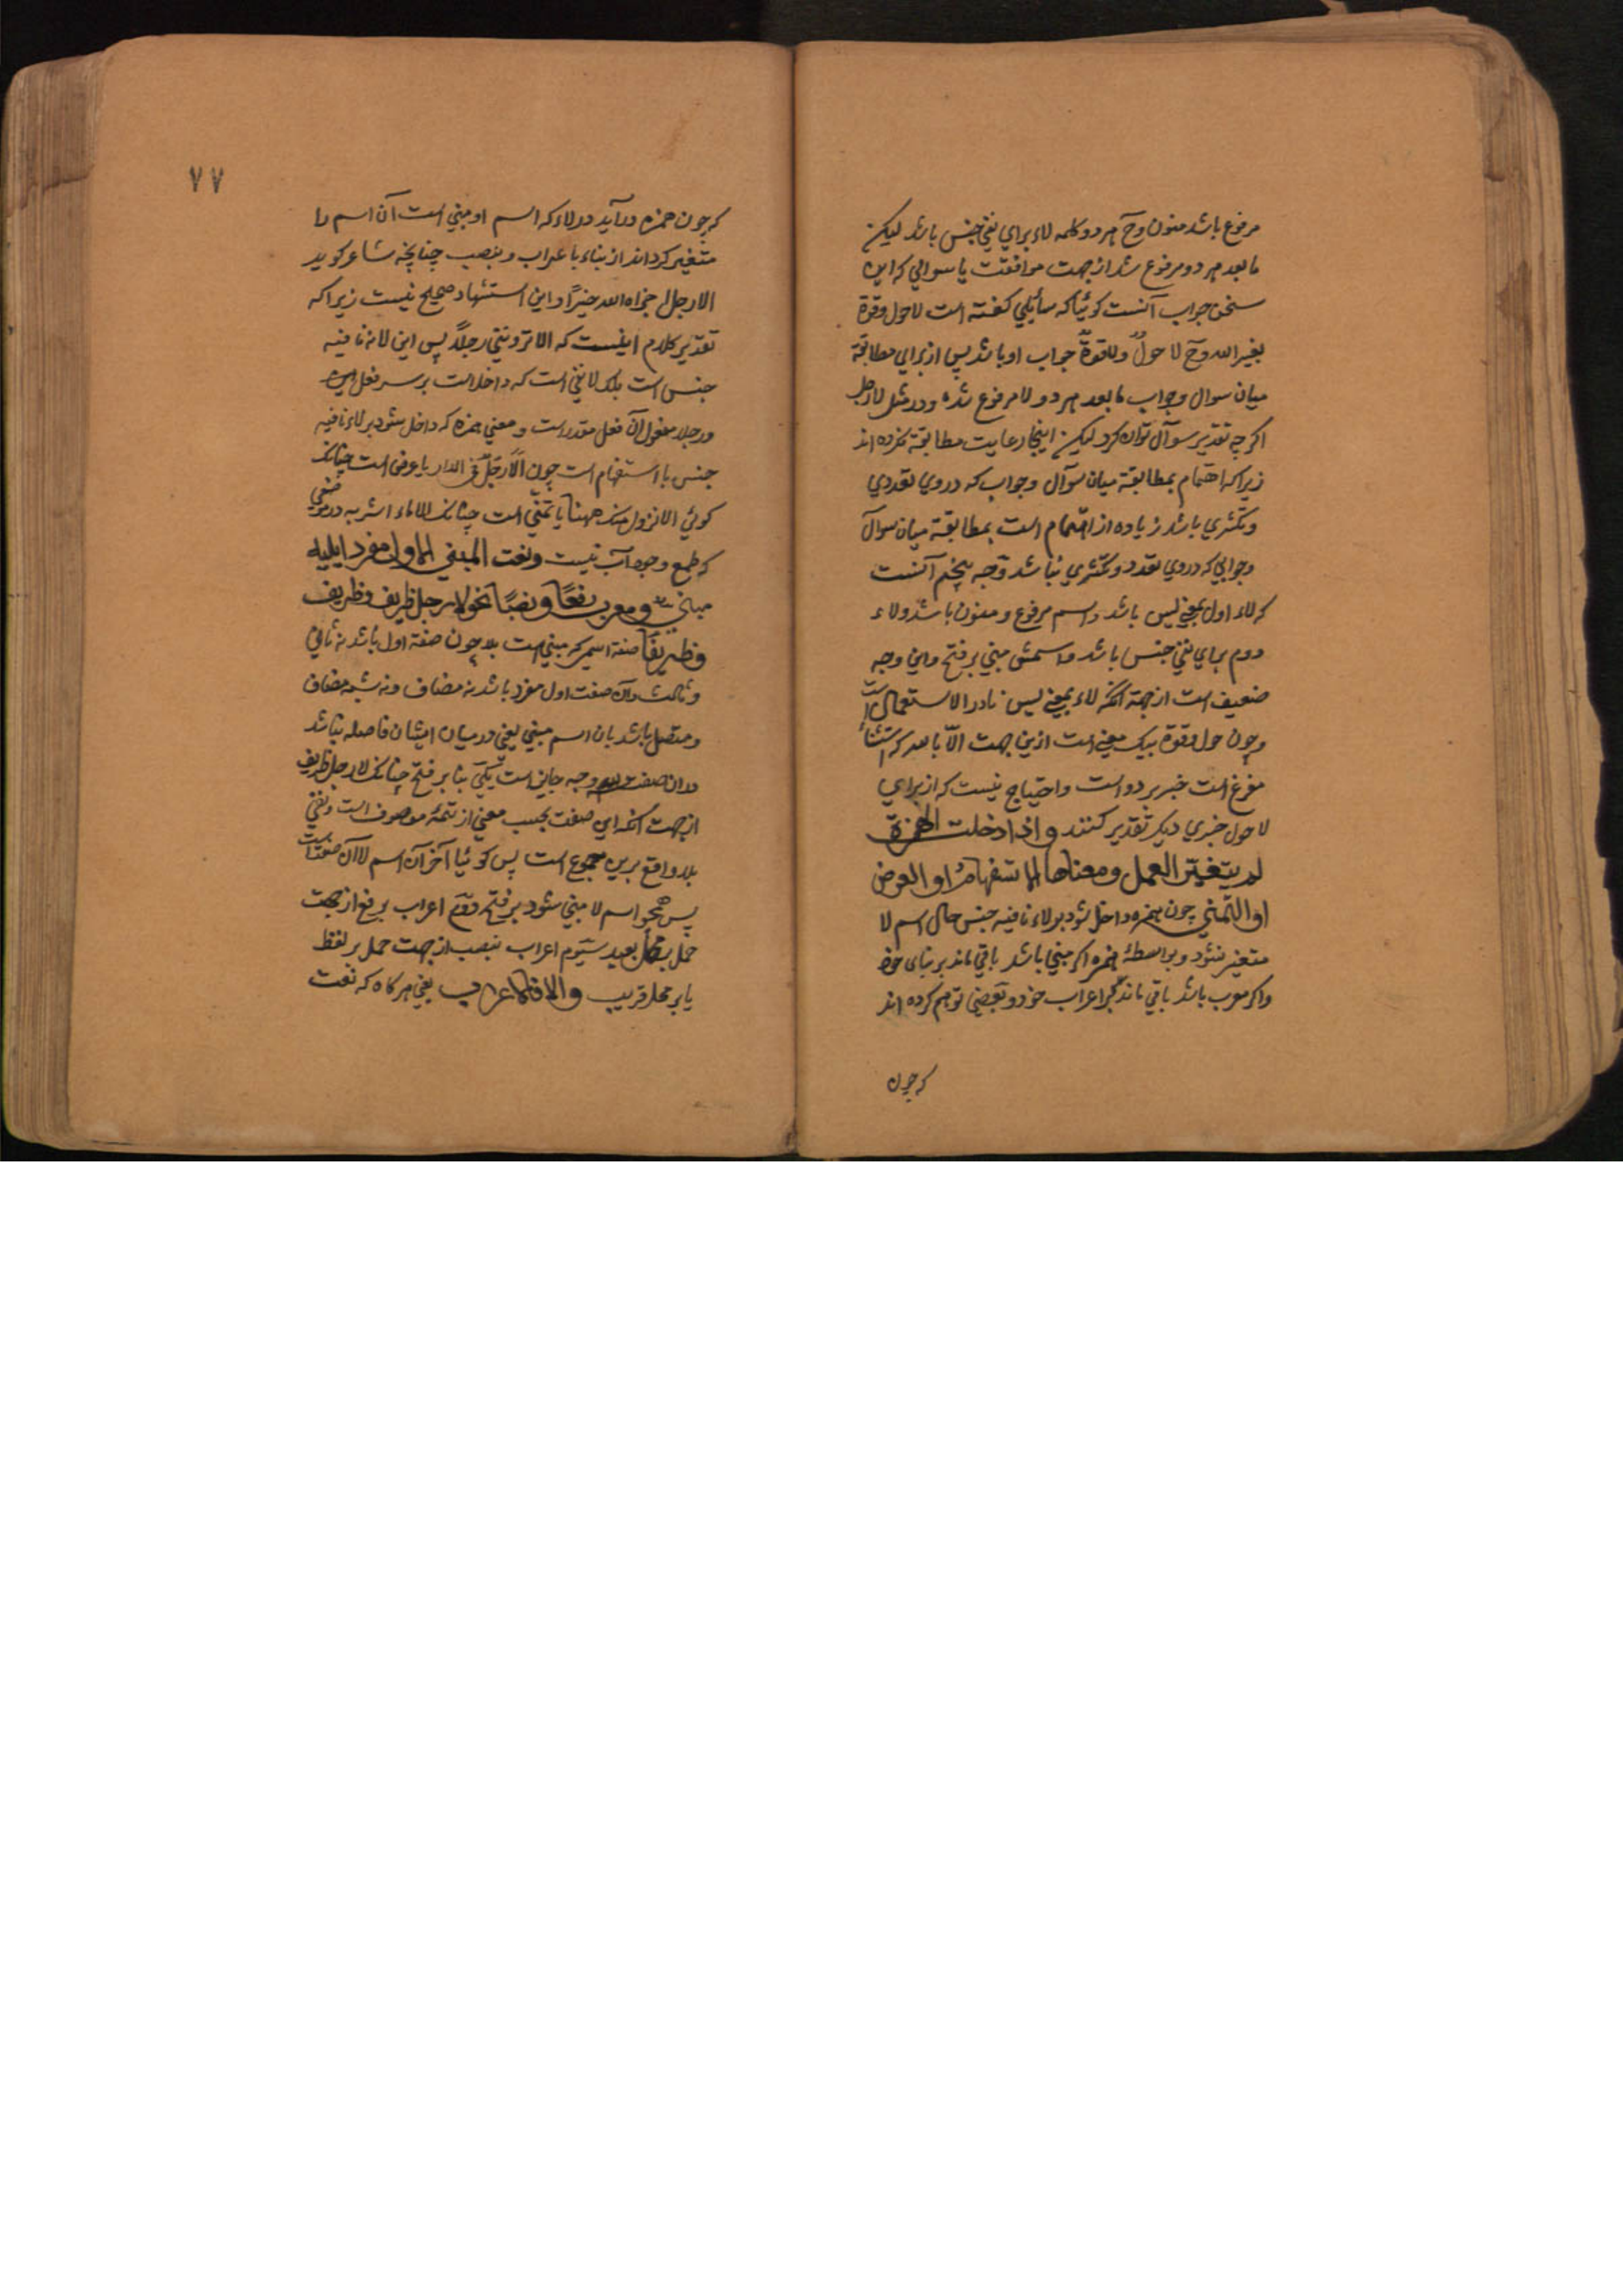 مرفوع باشد منون وح هر دو کلمه لاء برای نفی جنس باشد لیکن
ما بعد هر دو مرفوع شد از جهت موافقت با سوالی که این
سخن جواب آنست کوئیا که سائلی کفته است لا حول وقوة
بغیر الله وح لا حولٌ ولا قوةٌ جواب او باشد پس از برای مطابقة
میان سوال وجواب ما بعد هر دو لا مرفوع شده ودر مثل لا رجل
اکرچه تقدیر سوآل توان کرد لیکن اینجا رعایت مطابقة نکرده اند
زیرا که اهتمام بمطابقة میان سوآل وجواب که در وی تعددی
وتکثری باشد زیاده از اهتمام است بمطابقة میان سوآل
وجوابی که در وی تعدد وتکثری نباشد وجه پنجم آنست
که لاء اول بمعنی لیس باشد واسم مرفوع ومنون باشد ولاء
دوم برای نفی جنس باشد واسمش مبنی بر فتح واین وجه
ضعیف است از جهة آنکه لاء بمعنی لیس نادر الاستعمال است
وچون حول وقوة بیک معنی است ازین جهت الّا بالله که استثناء
مفرغ است خبر هر دو است واحتیاج نیست که از برای
لا حول خبری دیکر تقدیر کنند واذا دخلت الهمزة
لم یتغیر العمل ومعناها الاستفهام او العرض
او التمنی چون همزه داخل شود بر لاء نافیه جنس حال اسم لا
متغیر نشود وبواسطهٔ همزه اکر مبنی باشد باقی ماند بر بنای خود
واکر معرب باشد باقی ماند بر اعراب خود وبعضی توهم کرده اند
که چون
۷۷
که چون همزه در آید در لاء که اسم او مبنی است آن اسم را
متغیر کرداند از بناء باعراب وبنصب چنانچه شاعر کوید
الا رجل جزاه الله خیرًا واین استشهاد صحیح نیست زیرا که
تقدیر کلام اینست که الا تروننی رجلًا پس این لا نه نافیه
جنس است بلکه لا نفی است که داخل است بر سر فعل
ورجلا مفعول آن فعل مقدر است ومعنی همزه که داخل شود بر لاء نافیه
جنس یا استفهام است چون الا رجل فی الدار یا عرض است چنانکه
کوئی الا نزول منک ههنا یا تمنّی است چنانکه الا ماء اشربه در موضعی
که طمع وجود آب نیست ونعت المبنی الاول مفردا یلیه
مبنی ومعرب رفعًا ونصبًا نحو لا رجل ظریف وظریف
وظریفًا صفة اسمی که مبنی است بلا چون صفة اول باشد نه ثانی
وثالث وآن صفت اول مفرد باشد نه مضاف ونه شبه مضاف
ومتصل باشد بان اسم مبنی یعنی در میان ایشان فاصله نباشد
در ان صفت سه وجه جایز است یکی بنا بر فتح چنانکه لا رجل ظریف
از جهت آنکه این صفت بحسب معنی از تتمهٔ موصوف است ونفی
بلا واقع برین مجموع است پس کوئیا آخر آن اسم لا آن صفت است
پس همچو اسم لا مبنی شود بر فتح دوّم اعراب برفع از جهت
حمل بر محل بعید سیّوم اعراب بنصب از جهت حمل بر لفظ
یا بر محل قریب والا فالاعراب یعنی هر کاه که نعت